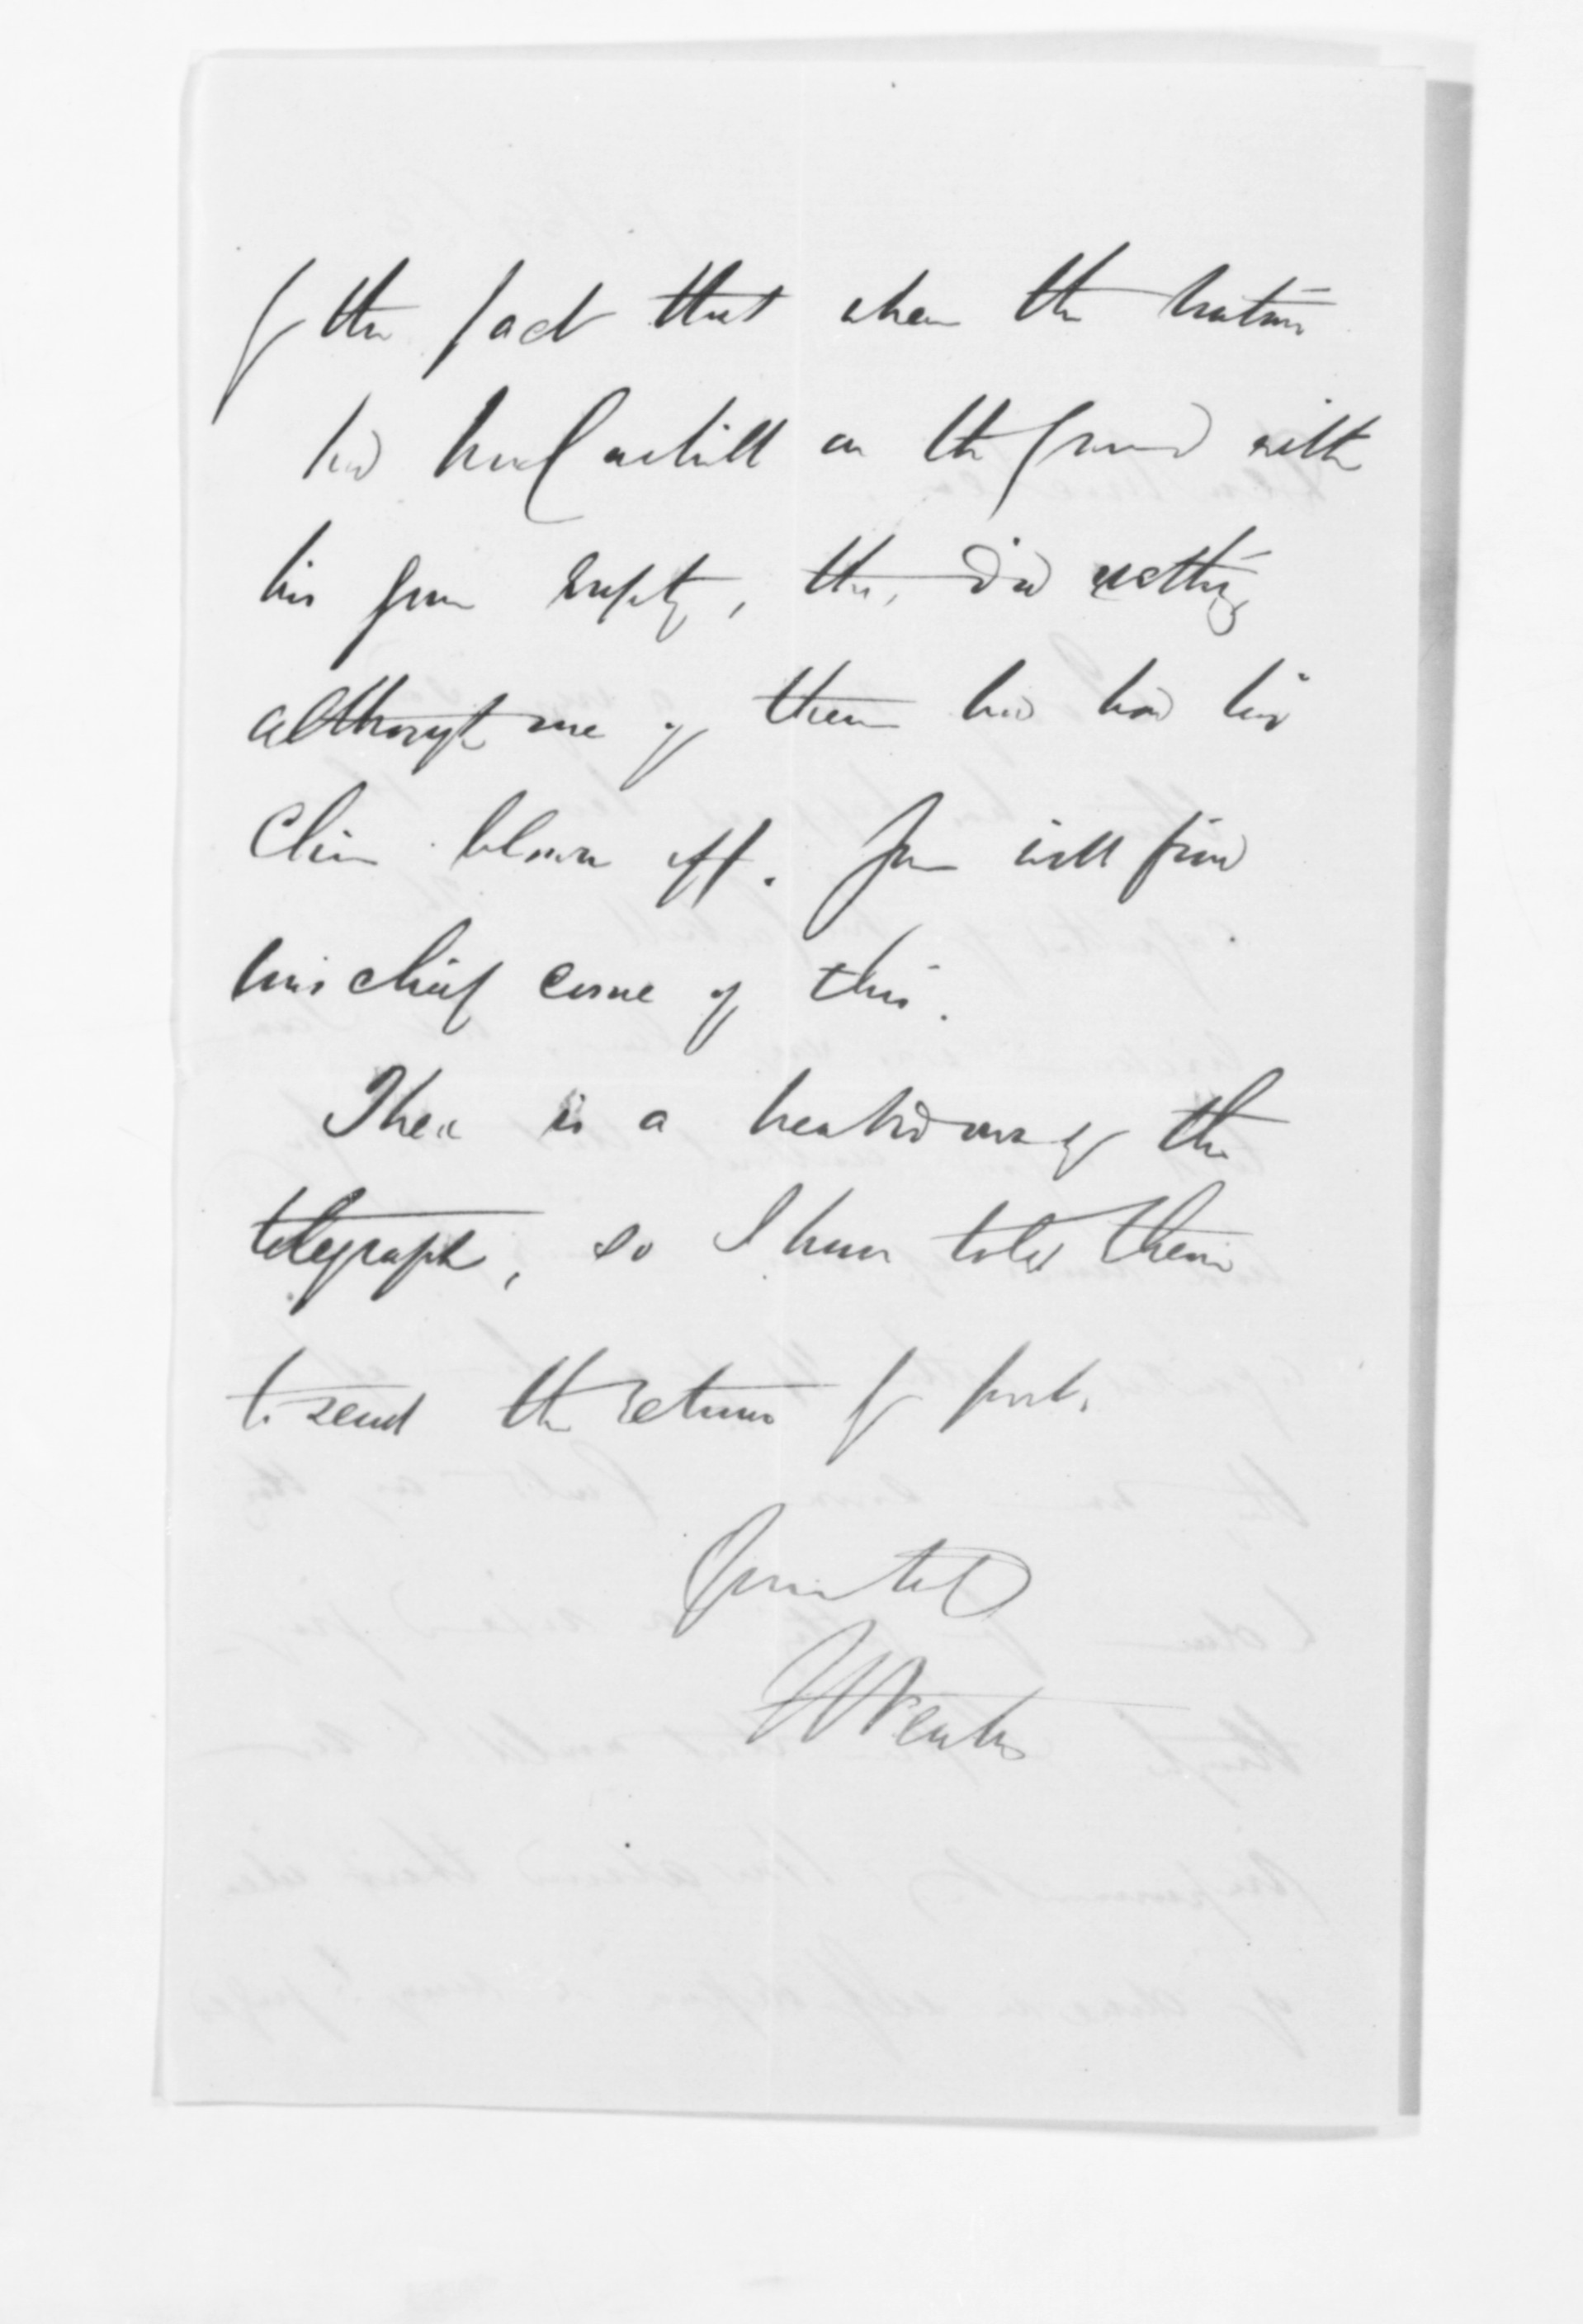 of the fact that when the natives
had MacCaskill on the ground with
his gun empty, they did nothing
although one of them had had his
chin blown off. You will find
mischief come of this.
There is a breakdown of the
telegraph, so I have told them
to send the returns by post.
Yours